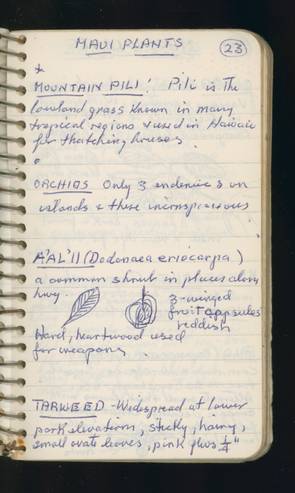 MAUI PLANTS
23
MOUNTAIN PILI! Pili is the
lowland grass known in many
tropical regions & used in Hawaii
for thatching houses.
ORCHIDS Only 3 endemic 3 on
islands & these inconspicuous
A'AL'II (Dodonaea eriocarpa)
a common shrub in places along
hwy.
3-winged
fruit capsules
reddish
Hard, heartwood used
for weapons.
TARWEED - Widespread at lower
park elevations, sticky, hairy,
small ovate leaves, pink flws 1/4"